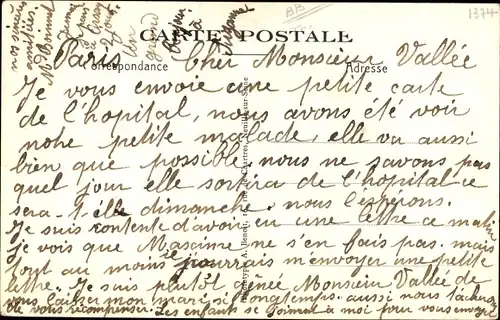 CARTE POSTALE
Correspondance
Adresse
1374
BB
Paris Cher Monsieur Vallée
Je vous envoie une petite carte
de l'hopital, nous avons été voir
notre petite malade, elle va aussi
bien que possible, nous ne savons pas
quel jour elle sortira de l'hopital ce
sera-t'elle dimanche nous l'esperons.
Je suis contente d'avoir eu une lettre ce matin
je vois que Maxime ne s'en fais pas. mais
tout au moins se pourrais m'envoyer une petite
lettre. Je suis plutôt gênée Monsieur Vallée de
vous laisser mon mari si longtemps. aussi nous tacherons
de vous recompenser. Les enfants se joignent à moi pour vous envoyer
nos amitiés
un
grand
à